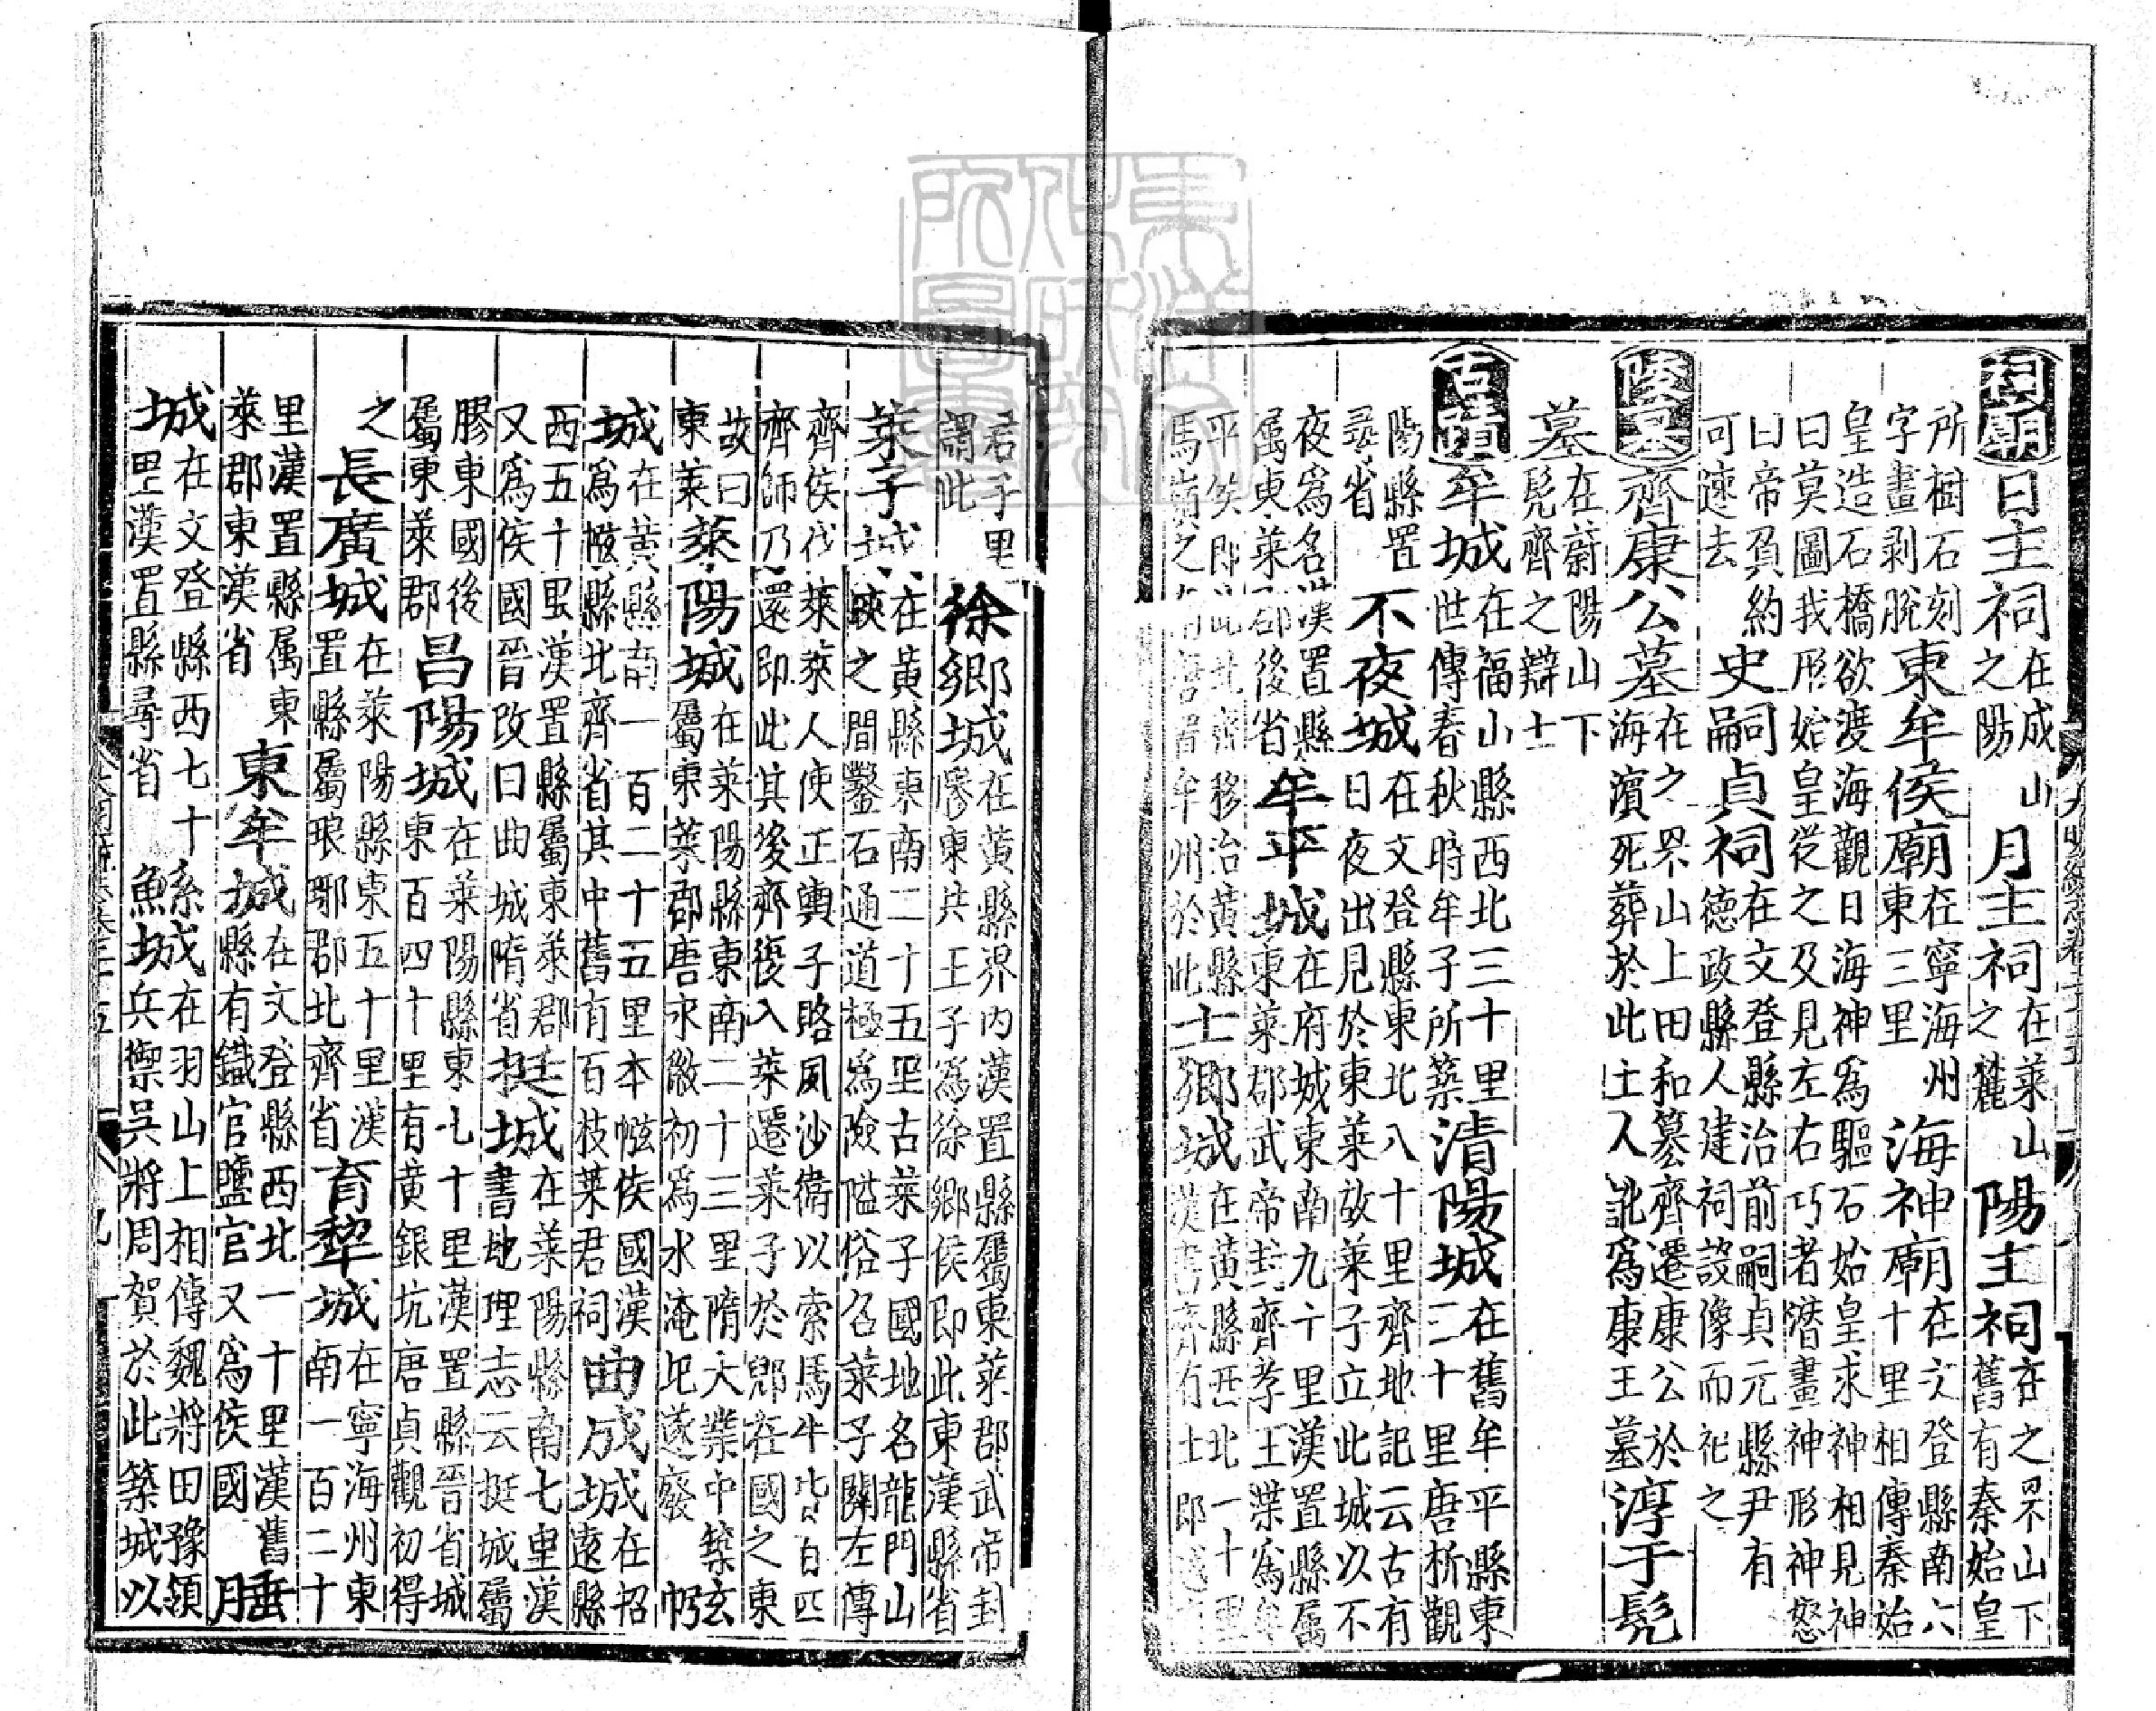 祠廟日主祠在成山之陽月主祠在萊山之麓陽主祠在之罘山下舊有秦始皇
所樹石刻字畫剥脫東牟侯廟在寧海州東三里海神廟在文登縣南六十里相傳秦始
皇造石橋欲渡海觀日海神爲驅石始皇求神相見神曰莫圖我形始皇從之及見左右巧者潛畫神形神怒
曰帝負約可速去史嗣貞祠在文登縣治前嗣貞元縣尹有德政縣人建祠設像而祀之
陵墓齊康公墓在之罘山上田和篡齊遷康公於海濱死葬於此土人訛爲康王墓淳于髡
墓在蔚陽山下髡齊之辯士
古蹟牟城在福山縣西北三十里世傳春秋時牟子所築清陽城在舊牟平縣東二十里唐析觀
陽縣置尋省不夜城在文登縣東北八十里齊地記云古有日夜出見於東萊故萊子立此城以不
夜爲名漢置縣屬東萊郡後省牟平城在府城東南九十里漢置縣属東萊郡武帝封齊孝王渫爲牟
平矦即此北齊移治黃縣馬嶺之南唐置牟州於此士鄉城在黃縣西北一十里漢書齊有士鄉越有
君子里謂此徐鄉城在黃縣界内漢置縣屬東萊郡武帝封膠東共王子爲徐鄉侯即此東漢縣省
萊子城在黃縣東南二十五里古萊子國地名龍門山峽之間鑿石通道極爲險隘俗名萊子關左傳
齊侯伐萊萊人使正輿子賂夙沙衛以索馬牛皆百匹齊師乃還即此其後齊復入萊遷萊子於郳在國之東
故曰東萊萊陽城在萊陽縣東南二十三里隋大業中築屬東萊郡唐永徽初爲水淹圮遂廢㡉
城在黃縣南一百二十五里本㡉侯國漢爲㡉縣北齊省其中舊有百枝萊君祠曲成城在招遠縣
西五十里漢置縣屬東萊郡又爲侯國晉改曰曲城隋省挺城在萊陽縣南七里漢書地理志云挺城屬
膠東國後屬東萊郡昌陽城在萊陽縣東七十里漢置縣晉省城東百四十里有黃銀坑唐貞觀初得
之長廣城在萊陽縣東五十里漢置縣屬琅琊郡北齊省育犂城在寧海州東南一百二十
里漢置縣属東萊郡東漢省東牟城在文登縣西北一十里漢舊縣有鐵官鹽官又爲侯國腄
城在文登縣西七十里漢置縣尋省縣城在羽山上相傳魏將田豫領兵禦吳將周賀於此築城以